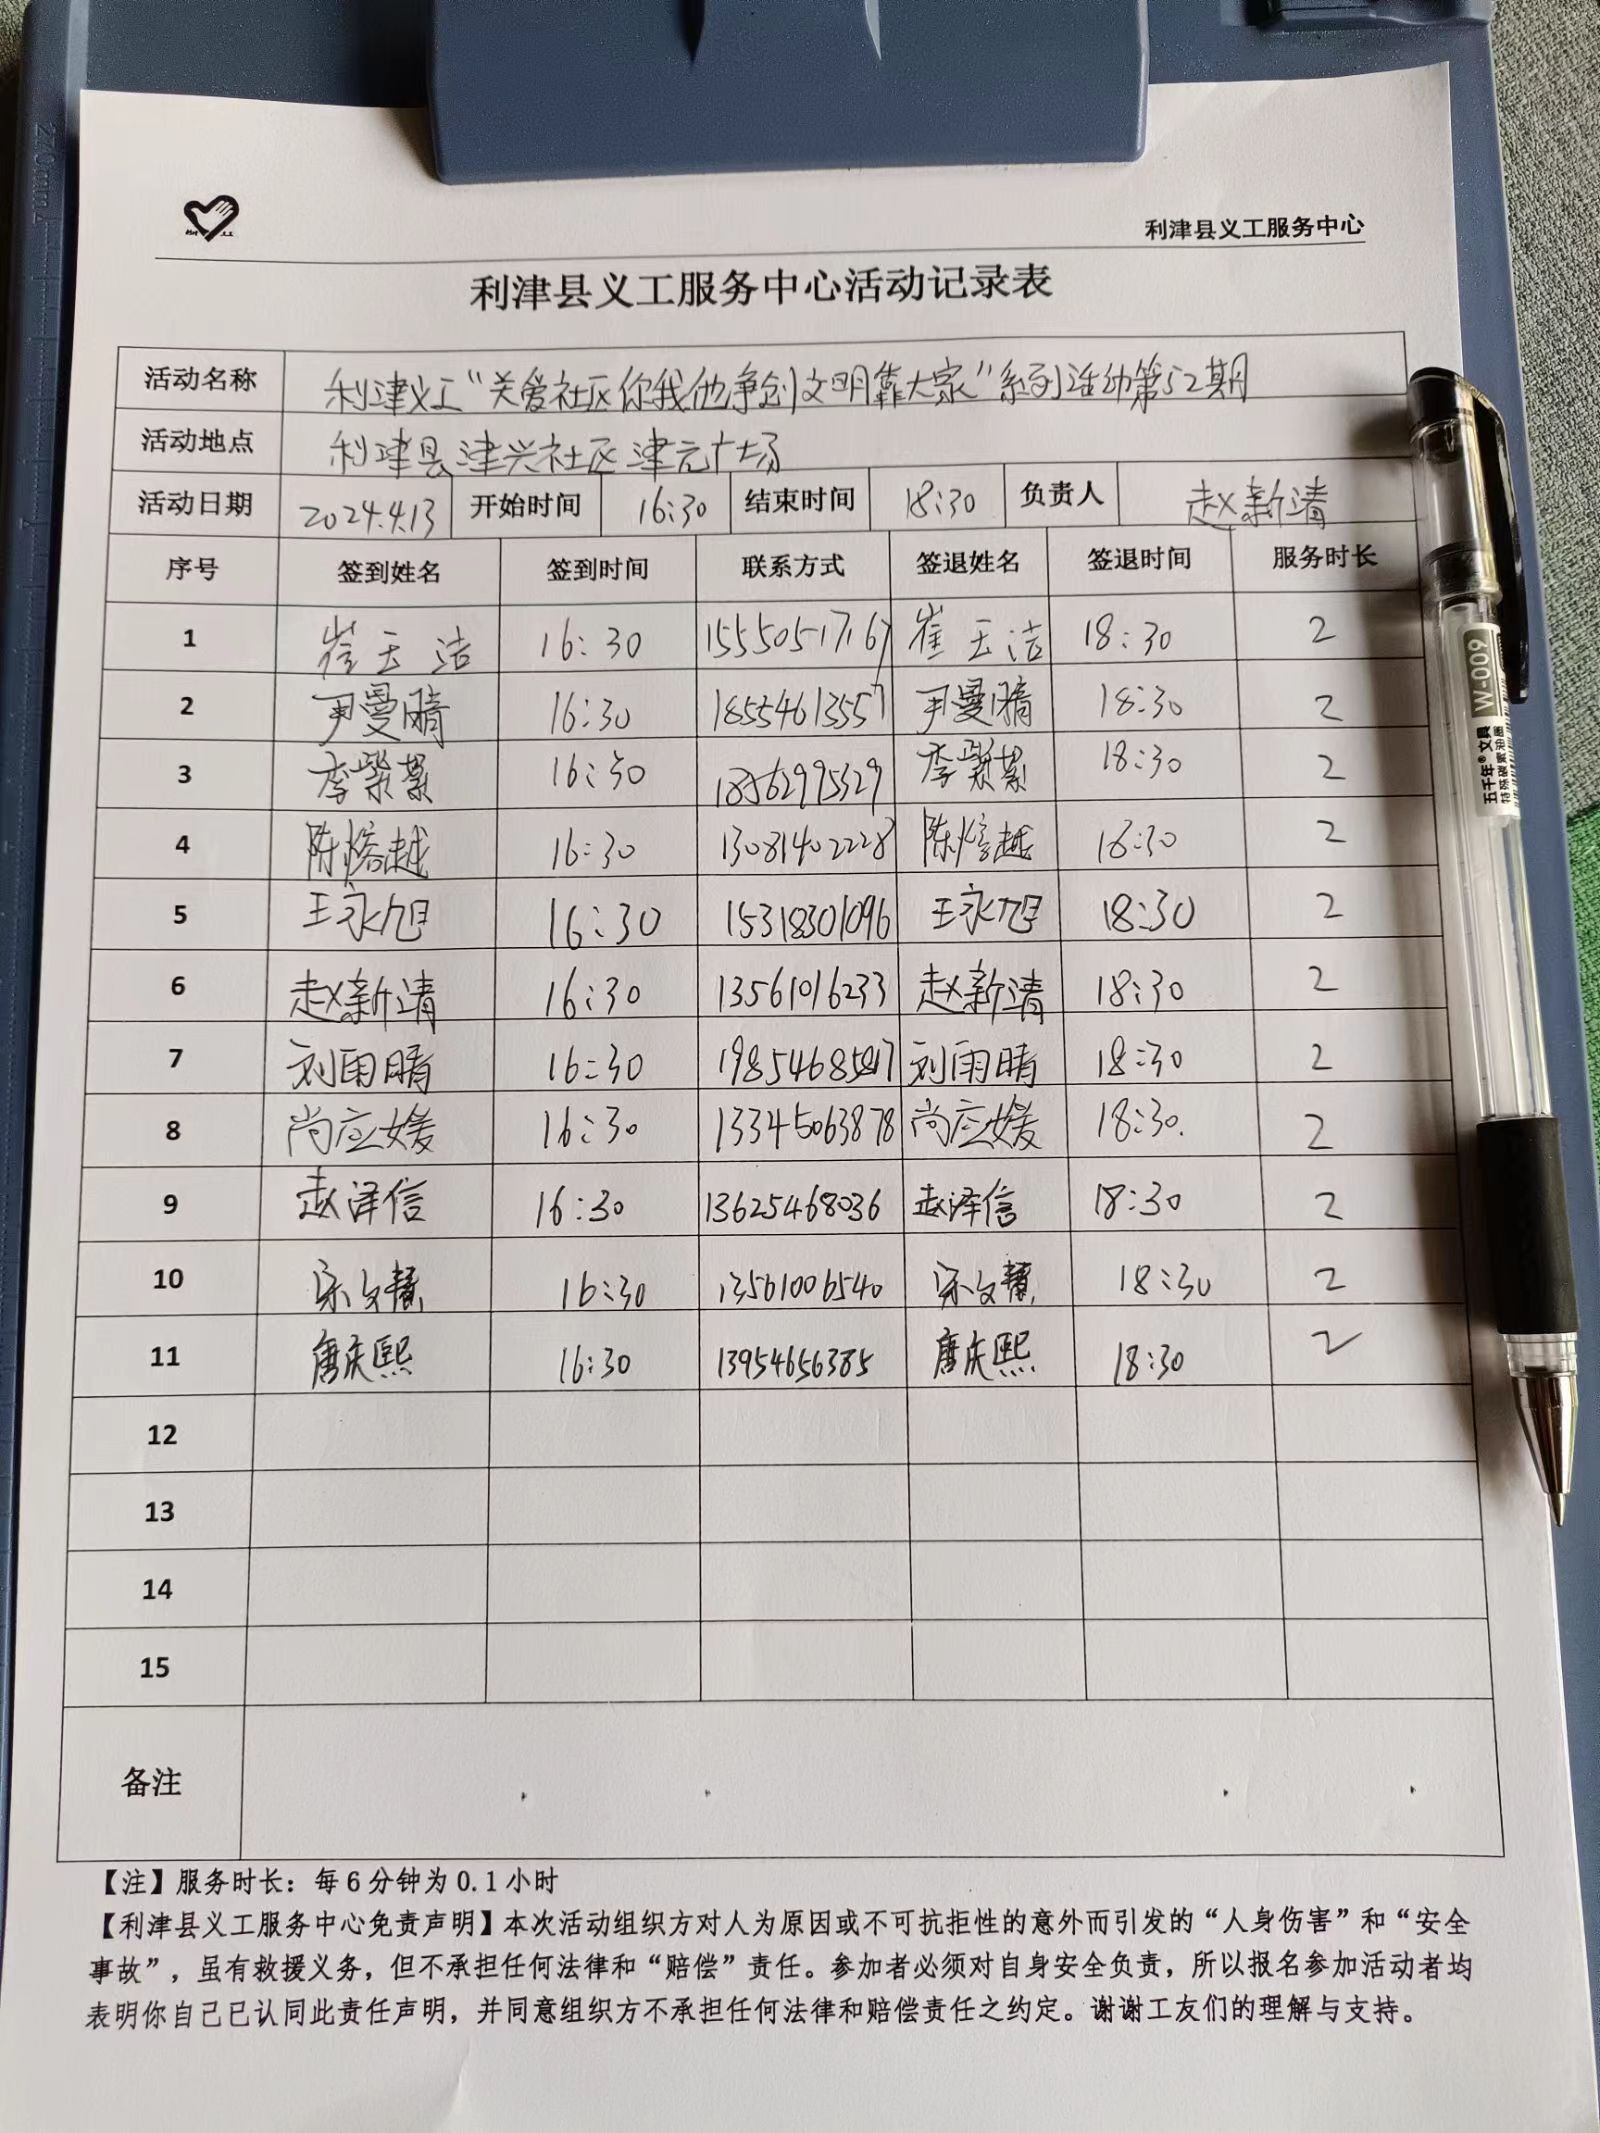 利津县义工服务中心
利津县义工服务中心活动记录表
活动名称 利津义工“关爱社区你我他争创文明靠大家”系列活动第52期
活动地点 利津县津兴社区津元广场
活动日期 2024.4.13 开始时间 16:30 结束时间 18:30 负责人 赵新清
序号 签到姓名 签到时间 联系方式 签退姓名 签退时间 服务时长
1 崔玉洁 16:30 15550517167 崔玉洁 18:30 2
2 尹曼晴 16:30 18554613557 尹曼晴 18:30 2
3 李紫萦 16:30 18562995329 李紫萦 18:30 2
4 陈熔越 16:30 13081402228 陈熔越 18:30 2
5 王永旭 16:30 15318301096 王永旭 18:30 2
6 赵新清 16:30 13561016233 赵新清 18:30 2
7 刘雨晴 16:30 刘雨晴 18:30 2
8 尚应媛 16:30 13345063878 尚应媛 18:30. 2
9 赵泽信 16:30 13625468036 赵泽信 18:30 2
10 宋文慧 16:30 13561006540 宋文慧 18:30 2
11 唐庆熙 16:30 13954656385 唐庆熙 18:30 2
12
13
14
15
备注
【注】服务时长：每6分钟为0.1小时
【利津县义工服务中心免责声明】本次活动组织方对人为原因或不可抗拒性的意外而引发的“人身伤害”和“安全
事故”，虽有救援义务，但不承担任何法律和“赔偿”责任。参加者必须对自身安全负责，所以报名参加活动者均
表明你自己已认同此责任声明，并同意组织方不承担任何法律和赔偿责任之约定。谢谢工友们的理解与支持。
270mm
W-009
五千年®文具